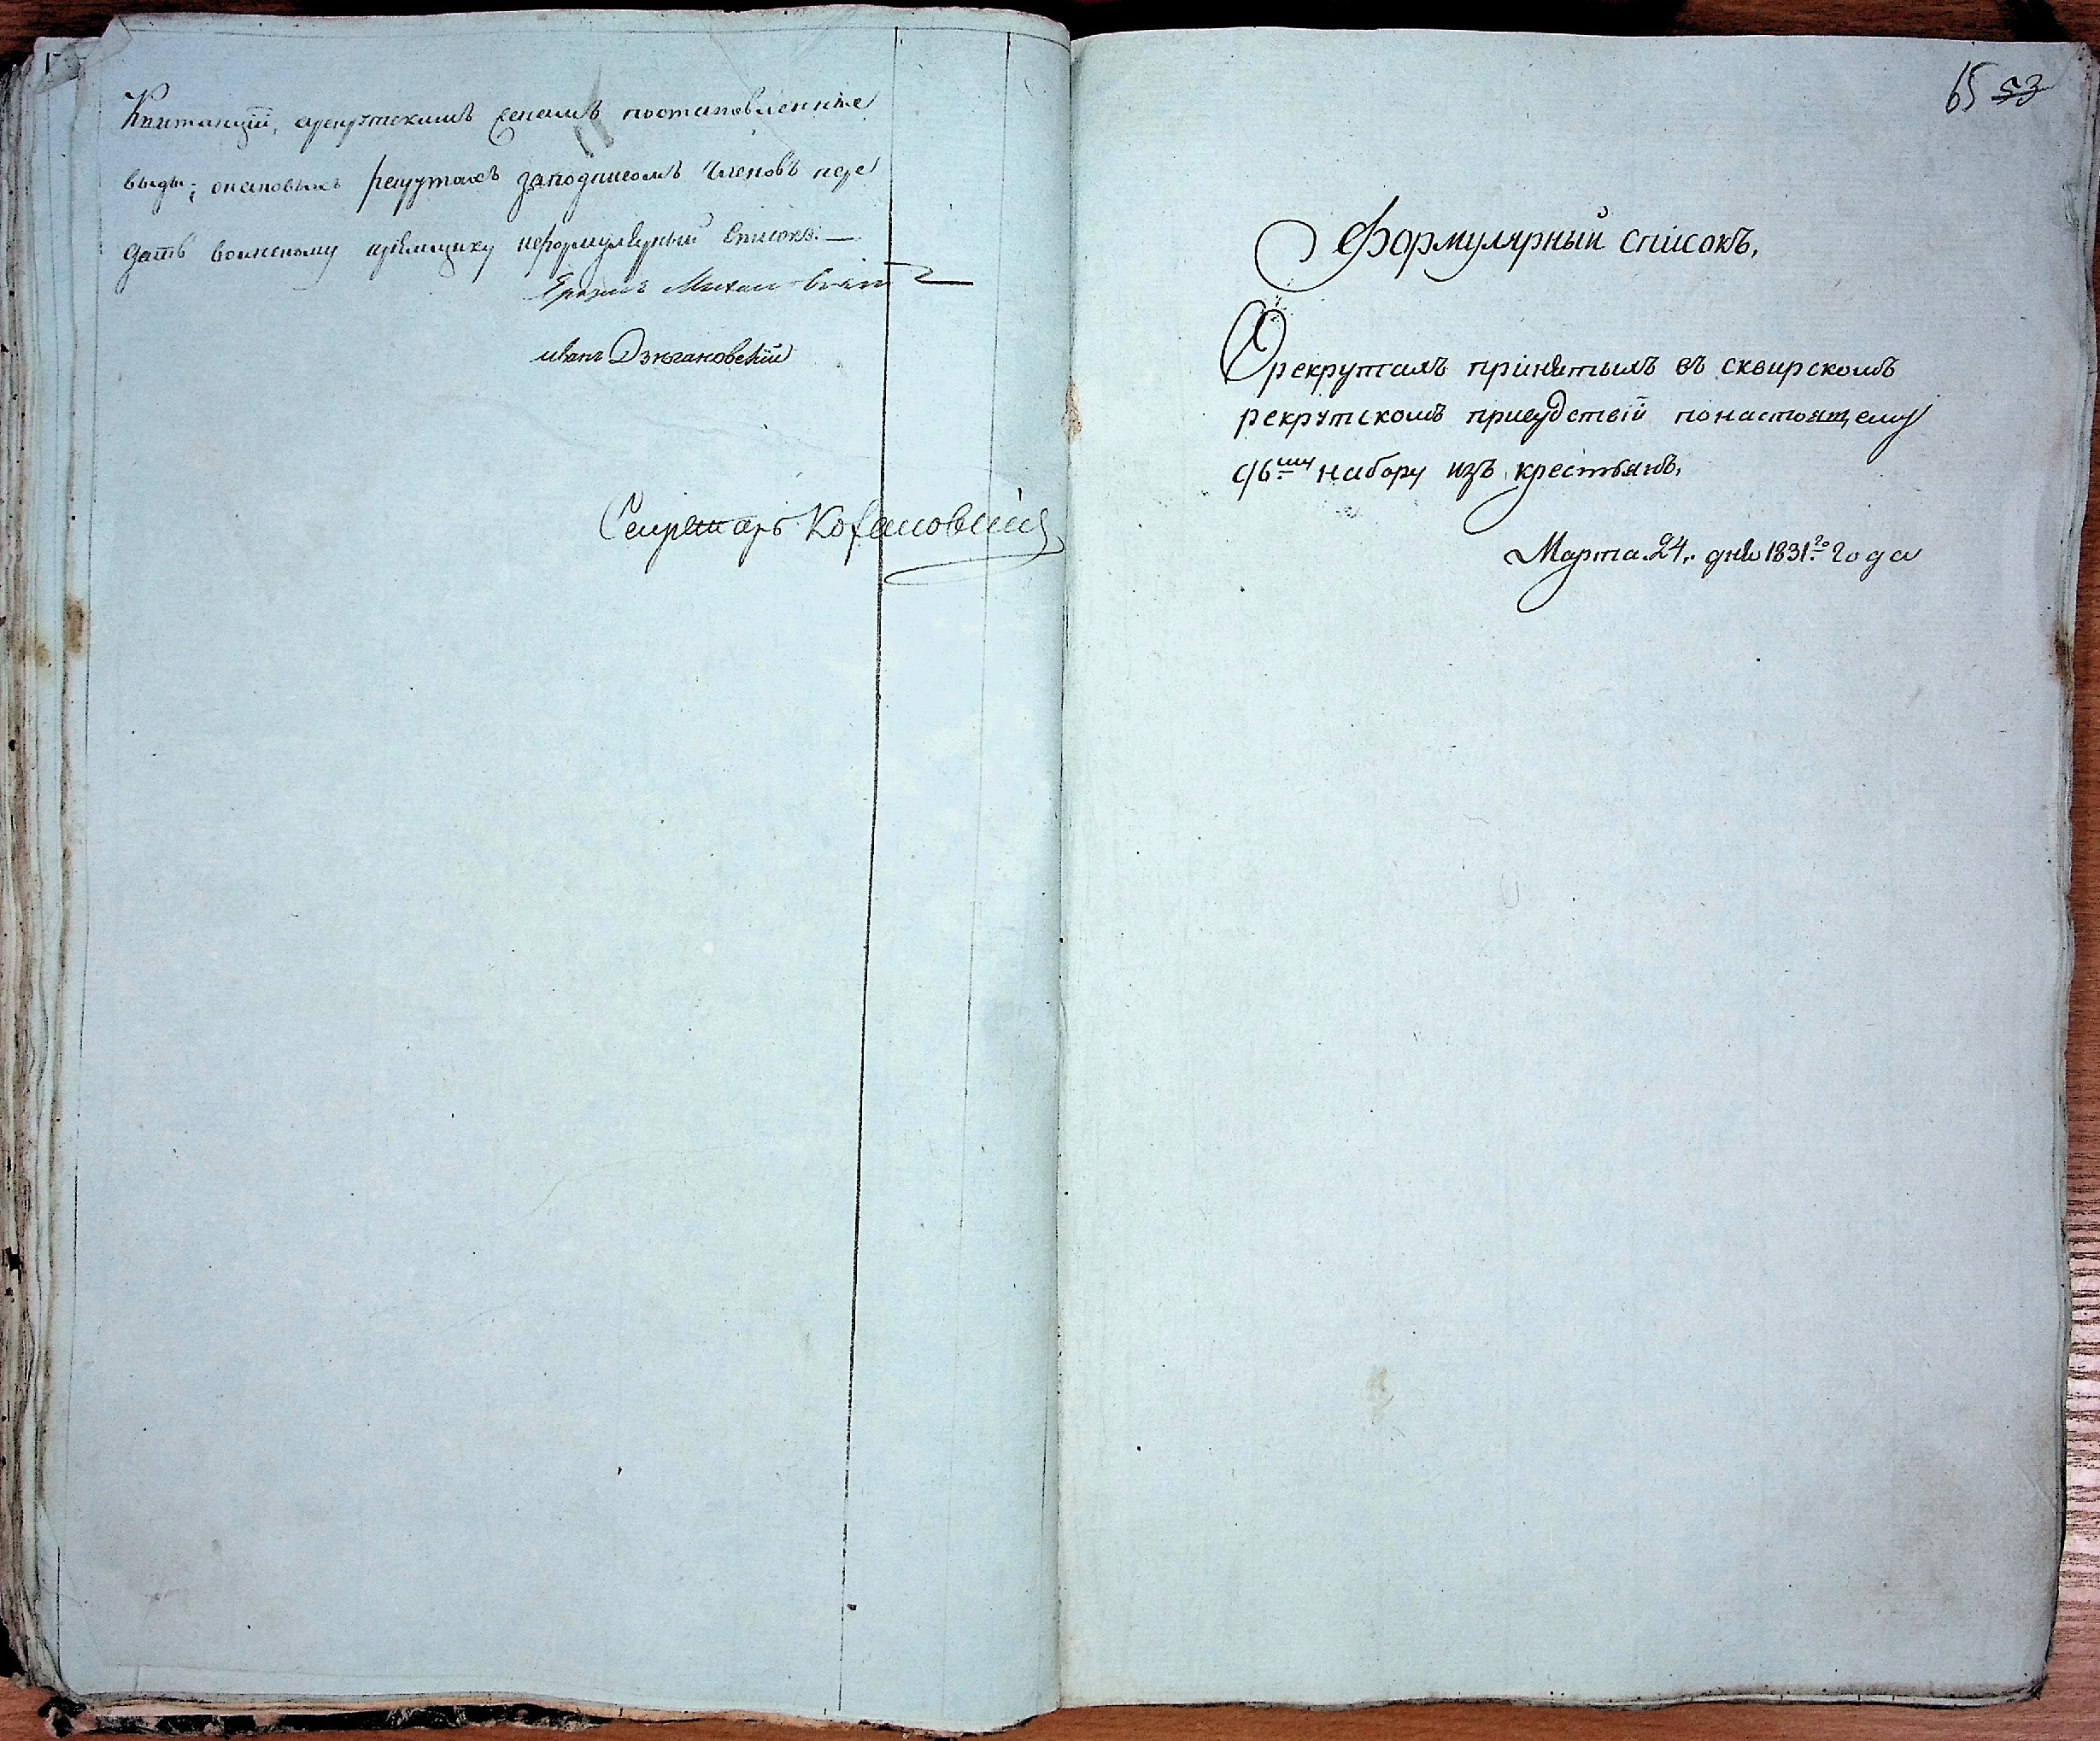 Квитанцій, арекрутскимъ селамъ постановленніе
выды; онановыхъ рекрутахъ заподписомъ Членовъ пере
дать воинскому пріемщику иформулярный Списокъ.—
иванъ Дзюгановскій
Секретарь Кохановскій
65 53
Формулярный списокъ,
О рекрутахъ принятыхъ въ сквирскомъ
рекрутскомъ присудствій понастоящему
96му набору изъ крестьянъ,
Марта 24. дня 1831го года